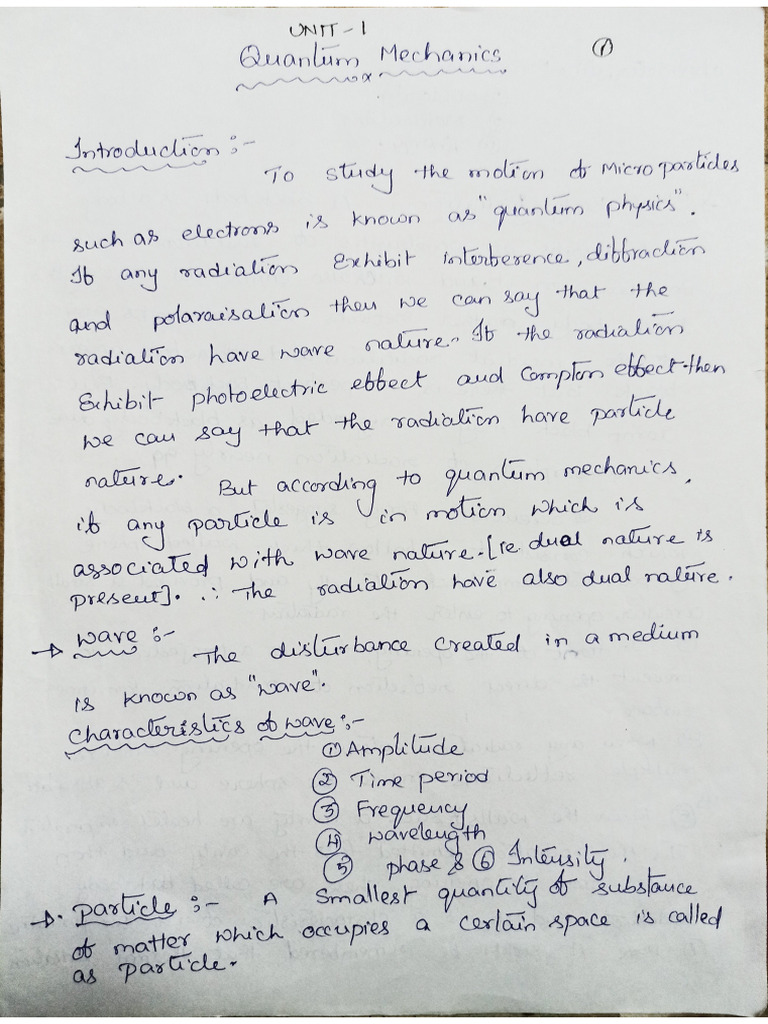 UNIT-1
Quantum Mechanics
1
Introduction :-
To study the motion of Micro particles
such as electrons is known as "quantum physics".
If any radiation Exhibit interference, diffraction
and polaraisation then we can say that the
radiation have wave nature. If the radiation
Exhibit photoelectric effect and Compton effect then
we can say that the radiation have particle
nature. But according to quantum mechanics,
if any particle is in motion which is
associated with wave nature. [ie dual nature is
present]. ∴ The radiation have also dual nature.
→ Wave :-
The disturbance created in a medium
is known as "wave".
Characteristics of wave :-
① Amplitude
② Time period
③ Frequency
④ wavelength
⑤ phase & ⑥ Intensity.
→ Particle :- A Smallest quantity of substance
of matter which occupies a certain space is called
as particle.